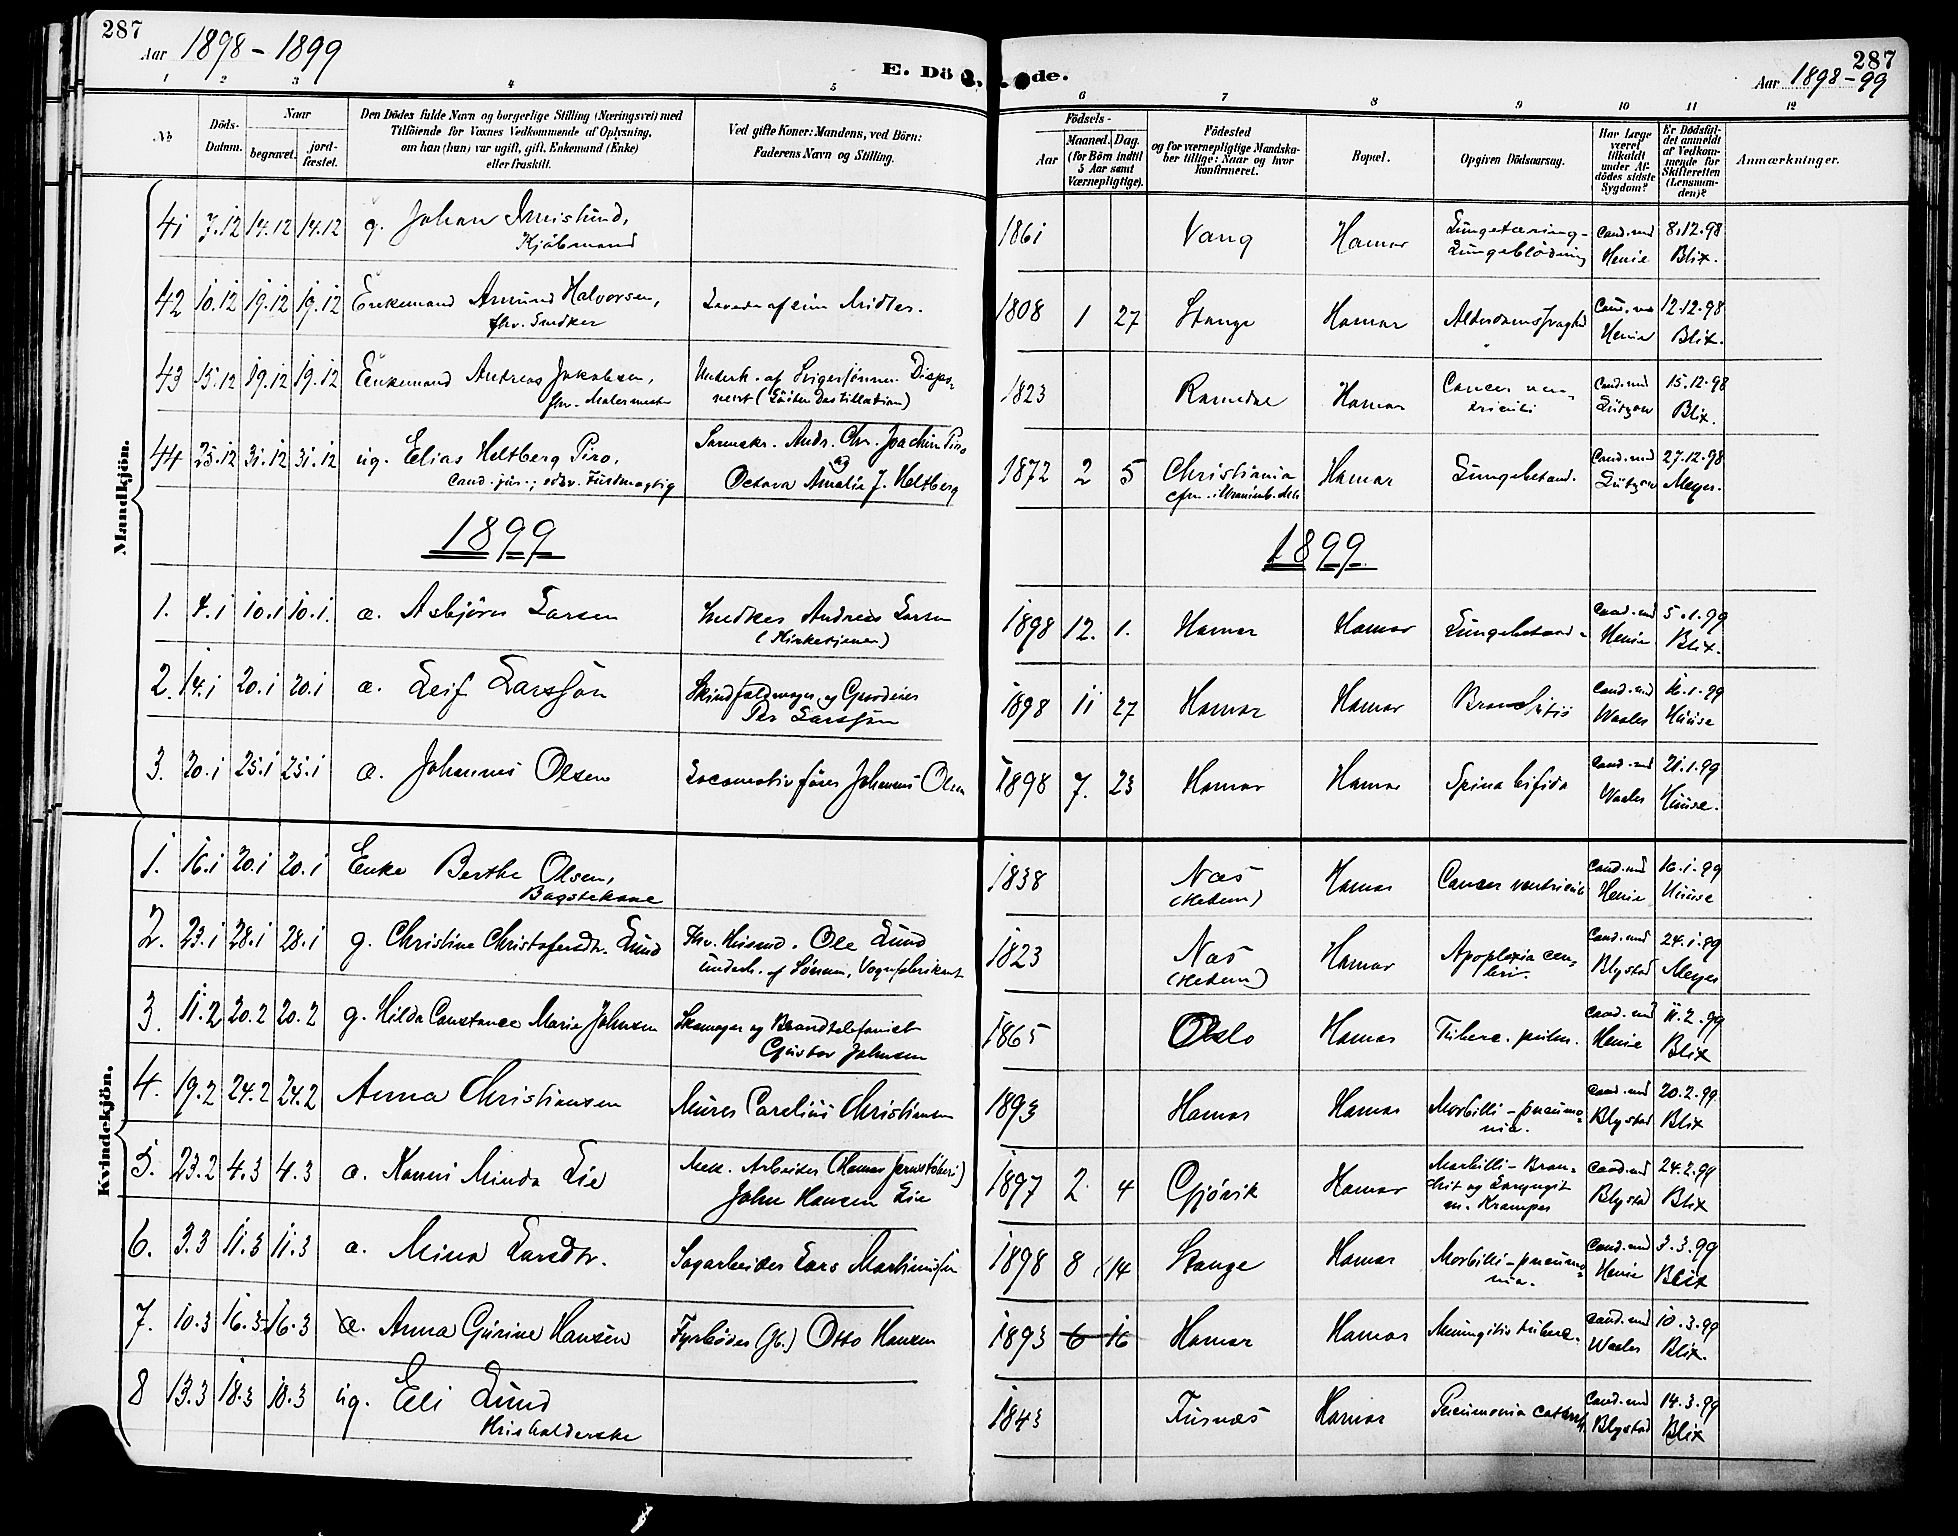 287
Aar 1898-1899
E. Dö de.
287
Aar 1898-99
1 2 3 4 5 6 7 8 9 10 11 12
No
Döds-Datum.
Naar
begravet.
jord-fæstet.
Den Dödes fulde Navn og borgerlige Stilling (Næringsvei) med
Tilföiende for Voxnes Vedkommende af Oplysning,
om han (hun) var ugift, gift, Enkemand (Enke)
eller fraskilt.
Ved gifte Koner: Mandens, ved Börn:
Faderens Navn og Stilling.
Födsels-
Aar
Maaned. Dag.
(for Börn indtil
5 Aar samt
Værnepligtige).
Födested
og for værnepligtige Mandska-
ber tillige: Naar og hvor
konfirmeret.
Bopæl.
Opgiven Dödsaarsag.
Har Læge
været
tilkaldt
under Af-
dödes sidste
Sygdom?
Er Dödsfal-
det anmeldt
af Vedkom-
mende for
Skifteretten
(Lensman-
den)?
Anmærkninger.
Mandkjön.
41 7.12 14.12 14.12 g. Johan
Kjøbmand
1861 Vang Hamar Lungetæring-
Lungeblødning
Cand. med Henie
8.12.98 Blix.
42 10.12 19.12 19.12 Enkemand Amund Halvorsen,
fhv. Snedker
Levede af sine Midler.
1808 1 27 Stange Hamar
Henie
12.12.98 Blix.
43 15.12 19.12 19.12 Enkemand Andreas Jakobsen,
fhv. Malermester
Underh. af Svigersønnen Dispo-
nent (Løiten Destillation)
1823 Hamar Cancer ven-
triculi
Cand. med Lützow
15.12.98 Blix.
44 25.12 31.12 31.12 ug. Elias Heltberg Piro,
Cand. jur.; edsv. Fuldmægtig
Andr. Chr. Joachim Piro
og
Octava Amalia J. Heltberg
1872 2 5 Christiania
Hamar Lungebetænd.
Cand. med Lützow
27.12.98 Meyer.
1899
1899
1. 4.1 10.1 10.1. a. Asbjørn Larsen
Snedker Andreas Larsen
(Kirketjener)
1898 12. 1. Hamar Hamar Lungebetænd.
Cand. med Henie
5.1.99 Blix.
2. 14.1 20.1 20.1 a. Leif Larssøn
Skindfeldmager og Gaardeier
Per Larssøn
1898 11 27 Hamar Hamar Bronchitis
Cand. med Waaler
16.1.99
3. 20.1 25.1 25.1 a. Johannes Olsen
Locomotivfører Johannes Olsen
1898 7. 23 Hamar Hamar Spina bifida
Cand. med Waaler
21.1.99
Kvindekjön.
1. 16.1 20.1 20.1 Enke Berthe Olsen,
Bagstekone
1838 Næs
(Hedem)
Hamar Cancer ventriculi
Cand. med Henie
16.1.99
2. 23.1 28.1 28.1 g. Christine Christofersdtr. Lund
Fhv. Husmd. Ole Lund
underh. af Sønnen, Vognfabrikant
1823 Næs
(Hedem)
Hamar Apoplexia cere-
bri.
Cand. med Blystad
24.1.99 Meyer
3. 11.2 20.2 20.2 g. Hilda Constance Marie Johnsen
Skomager og Brandtelefonist
Gustav Johnsen
1865 Oslo Hamar Tuberc. pulm.
Cand. med Henie
11.2.99 Blix
4. 19.2 24.2 24.2 Anna Christiansen
Murer Carelius Christiansen
1893 Hamar Hamar Morbilli-pneumo-
nia.
Cand. med Blystad
20.2.99 Blix
5. 23.2 4.3 4.3 a. Nanni Minda Lie
Mek. Arbeider (Hamar Jernstøberi)
John Hansen Lie
1897 2. 4 Gjøvik Hamar Morbilli-Bron-
chit og Laryngit
m. Kramper
Cand. med Blystad
24.2.99 Blix
6. 3.3 11.3 11.3 a. Mina Larsdtr.
Sagarbeider Lars Martiniussen
1898 8 14 Stange Hamar Morbilli-pneumo-
nia.
Cand. med Henie
3.3.99 Blix
7. 10.3 16.3 16.3 a. Anna Gurine Hansen
Fyrbøder (Jb.) Otto Hansen
1893 6 16 Hamar Hamar Meningitis tuberc.
Cand. med Waaler
10.3.99 Blix.
8 13.3 18.3 18.3 ug. Eli Lund
Husholderske
1843 Furnæs Hamar Pneumonia catarrh.
Cand. med Blystad
14.3.99 Blix